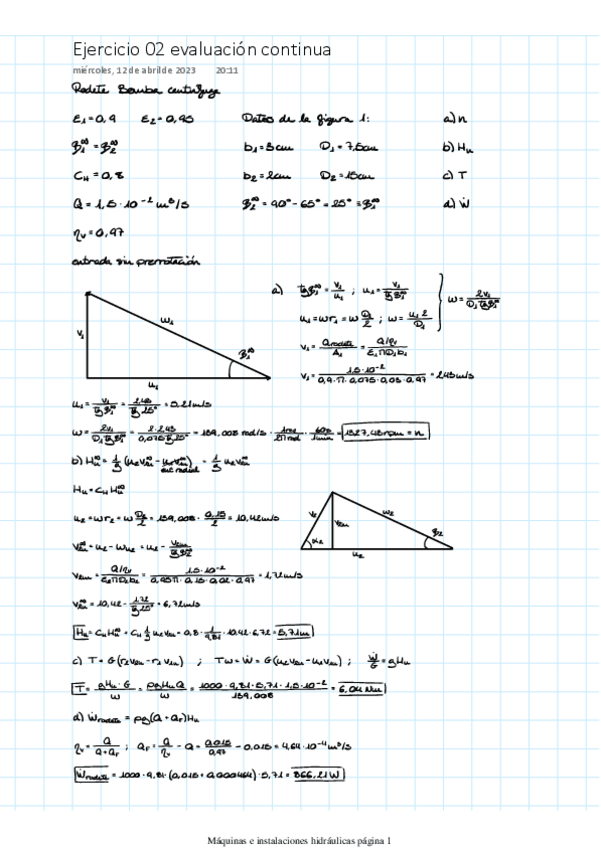 Ejercicio 02 evaluación continua
miércoles, 12 de abril de 2023 20:11
Rodete Bomba centrífuga
ε₁=0,9 ε₂=0,95 Datos de la figura 1: a) n
β₁^∞ = β₂^∞ b₁=3cm D₁=7,5cm b) Hu
C_H=0,8 b₂=2cm D₂=15cm c) T
Q=1,5·10⁻² m³/s β₂^∞=90°-65°=25°=β₁^∞ d) Ẇ
ηv=0,97
entrada sin prerrotación
a) tgβ₁^∞ = v₁/u₁ ; u₁ = v₁/tgβ₁^∞
u₁=ωr₁=ω D₁/2 ; ω= u₁·2/D₁
ω = 2v₁/(D₁tgβ₁^∞)
v₁ = Qrodete/A₁ = (Q/ηv)/(ε₁πD₁b₁)
v₁ = 1,5·10⁻²/(0,9·π·0,075·0,03·0,97) = 2,43m/s
v₁ w₁ β₁^∞ u₁
u₁ = v₁/tgβ₁^∞ = 2,43/tg25° = 5,21m/s
ω = 2v₁/(D₁tgβ₁^∞) = 2·2,43/(0,075tg25°) = 139,008 rad/s · 1rev/2πrad · 60s/1min = 1327,43rpm = n
b) Hu^∞ = 1/g (u₂v₂u - u₁v₁u) = 1/g u₂v₂u^∞
Hu = C_H Hu^∞
u₂ = ωr₂ = ω D₂/2 = 139,008 · 0,15/2 = 10,42m/s
v₂ w₂ v₂m α₂ β₂ u₂
v₂u^∞ = u₂ - w₂u = u₂ - v₂m/tgβ₂^∞
v₂m = (Q/ηv)/(ε₂πD₂b₂) = 1,5·10⁻²/(0,95π·0,15·0,02·0,97) = 1,72m/s
v₂u^∞ = 10,42 - 1,72/tg25° = 6,72m/s
Hu = C_H Hu^∞ = C_H 1/g u₂v₂u = 0,8 · 1/9,81 · 10,42·6,72 = 5,71m
c) T = G(r₂v₂u - r₁v₁u) ; Tω = Ẇ = G(u₂v₂u - u₁v₁u) ; Ẇ/G = gHu
T = gHu·G/ω = ρgHuQ/ω = 1000·9,81·5,71·1,5·10⁻²/139,008 = 6,04 Nm
d) Ẇrodete = ρg(Q+qr)Hu
ηv = Q/(Q+qr) ; qr = Q/ηv - Q = 0,015/0,97 - 0,015 = 4,64·10⁻⁴m³/s
Ẇrodete = 1000·9,81·(0,015+0,000464)·5,71 = 866,21W
Máquinas e instalaciones hidráulicas página 1